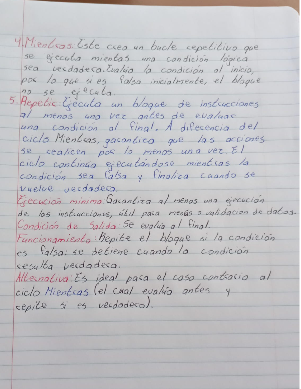 4. Mientras: Este crea un bucle repetitivo que
se ejecuta mientras una condición lógica
sea verdadera. Evalúa la condición al inicio,
por lo que si es falsa inicialmente, el bloque
no se ejecuta.
5. Repetir: Ejecuta un bloque de instrucciones
al menos una vez antes de evaluar
una condición al final. A diferencia del
ciclo Mientras, garantiza que las acciones
se realicen por lo menos una vez. El
ciclo continúa ejecutándose mientras la
condición sea falsa y finaliza cuando se
vuelve verdadera.
Ejecución mínima: Garantiza al menos una ejecución
de las instrucciones, útil para menús o validación de datos.
Condición de Salida: Se evalúa al final.
Funcionamiento: Repite el bloque si la condición
es falsa; se detiene cuando la condición
resulta verdadera.
Alternativa: Es ideal para el caso contrario al
ciclo Mientras (el cual evalúa antes y
repite si es verdadero).